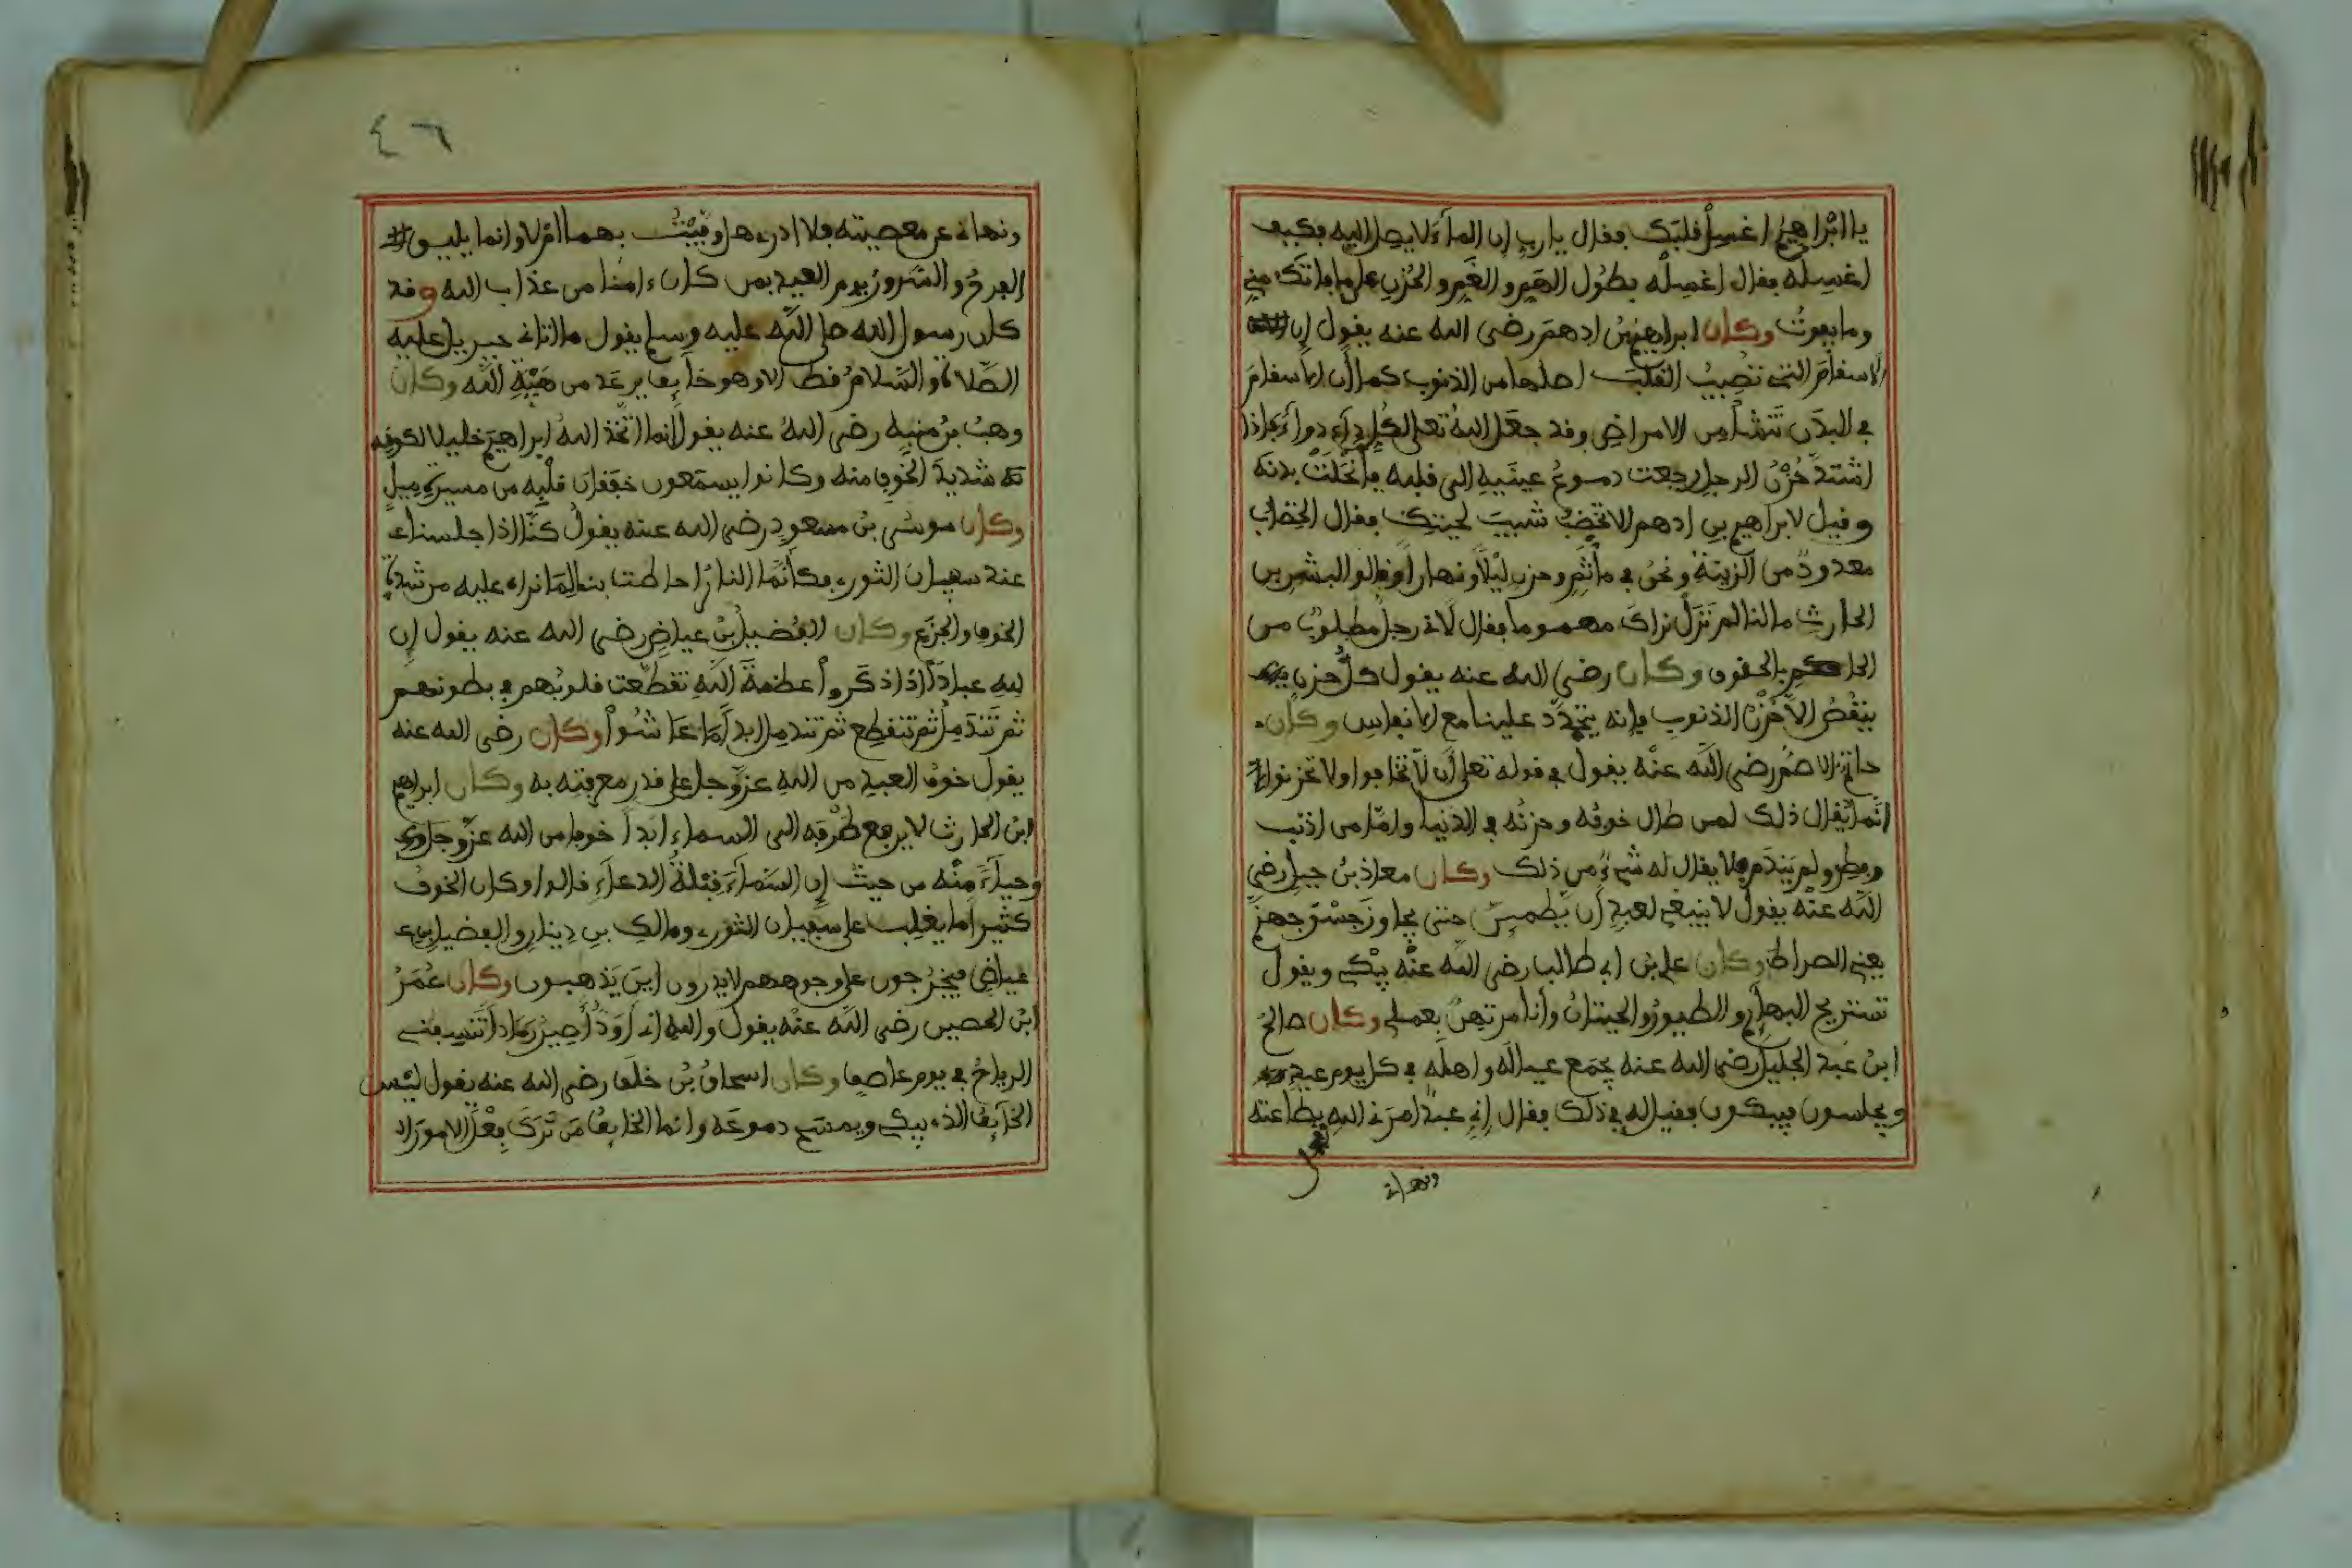 يا ابراهيم اغسل قلبك فقال يا رب إن المآء لا يصل اليه فكيف
اغسله فقال اغسله بطول الهم والغم والحزن على ما فاتك مني
وما يفوت وكان ابراهيم بن ادهم رضي الله عنه يقول إن
الاسقام التي تصيب القلب اصلها من الذنوب كما أن الاسقام
في البدن تنشأ من الامراض وقد جعل الله تعلى لكل داء دواء فاذا
اشتد حزن الرجل رجعت دموع عينيه الى قلبه فأنحلت بدنه
وقيل لابراهيم بن ادهم الا تخضب شيب لحيتك فقال الخضاب
معدود من الزينة ونحن في مأتم وحزن ليلا ونهارا وقالوا لبشر بن
الحارث ما لنا لم نزل نراك مهموما فقال لاني رجل مطلوب من
الحاكم بالحقوق وكان رضي الله عنه يقول كل حزن
ينقص الا حزن الذنوب فإنه يتجدد علينا مع الانفاس وكان
حاتم الاصم رضي الله عنه يقول في قوله تعلى أن لا تخافوا ولا تحزنوا
انما يقال ذلك لمن طال خوفه وحزنه في الدنيا وامّا من اذنب
وبطر ولم يندم فلا يقال له شيء من ذلك وكان معاذ بن جبل رضي
الله عنه يقول لا ينبغي لعبد أن يطمئن حتى يجاوز جسر جهنم
يعني الصراط وكان علي بن ابي طالب رضي الله عنه يبكي ويقول
تستريح البهائم والطيور والحيتان وأنا مرتهن بعملي وكان صالح
ابن عبد الجليل رضي الله عنه يجمع عياله واهله في كل يوم عيد
ويجلسون فيبكون فقيل له في ذلك فقال إني عبد امرني الله بطاعته
ونهاني
٤٦
ونهاني عن معصيته فلا ادري هل وفيت بهما ام لا وانما يليق
الفرح والسرور يوم العيد بمن كان ءامنا من عذاب الله وقد
كان رسول الله صلى الله عليه وسلم يقول ما اتاني جبريل عليه
الصلاة والسلام قط الا وهو خآئف يرعد من هيبة الله وكان
وهب بن منبه رضي الله عنه يقول انما اتخذ الله ابراهيم خليلا لكونه
شديد الخوف منه وكانوا يسمعون خفقان قلبه من مسيرة ميل
وكان موسى بن مسعود رضي الله عنه يقول كنّا اذا جلسنا
عند سفيان الثوري فكأنما النار احاطت بنا لما نراه عليه من شدة
الخوف والجزع وكان الفضيل بن عياض رضي الله عنه يقول إن
لله عبادا اذا ذكروا عظمة الله تقطعت قلوبهم في بطونهم
ثم تندمل ثم تتقطع ثم تندمل ابدا ما عاشوا وكان رضي الله عنه
يقول خوف العبد من الله عز وجل على قدر معرفته به وكان ابراهيم
ابن الحارث لا يرفع طرفه الى السماء ابدا خوفا من الله عز وجل
وحيآء منه من حيث إن السمآء قبلة الدعآء قالوا وكان الخوف
كثيرا ما يغلب على سفيان الثوري ومالك بن دينار والفضيل بن
عياض فيخرجون على وجوههم لا يدرون اين يذهبون وكان عمر
ابن الحصين رضي الله عنه يقول والله اني أود أصير رمادا تنسفني
الرياح في يوم عاصف وكان اسحاق بن خلف رضي الله عنه يقول ليس
الخآئف الذي يبكي ويمسح دموعه وانما الخائف من ترك فعل الامور